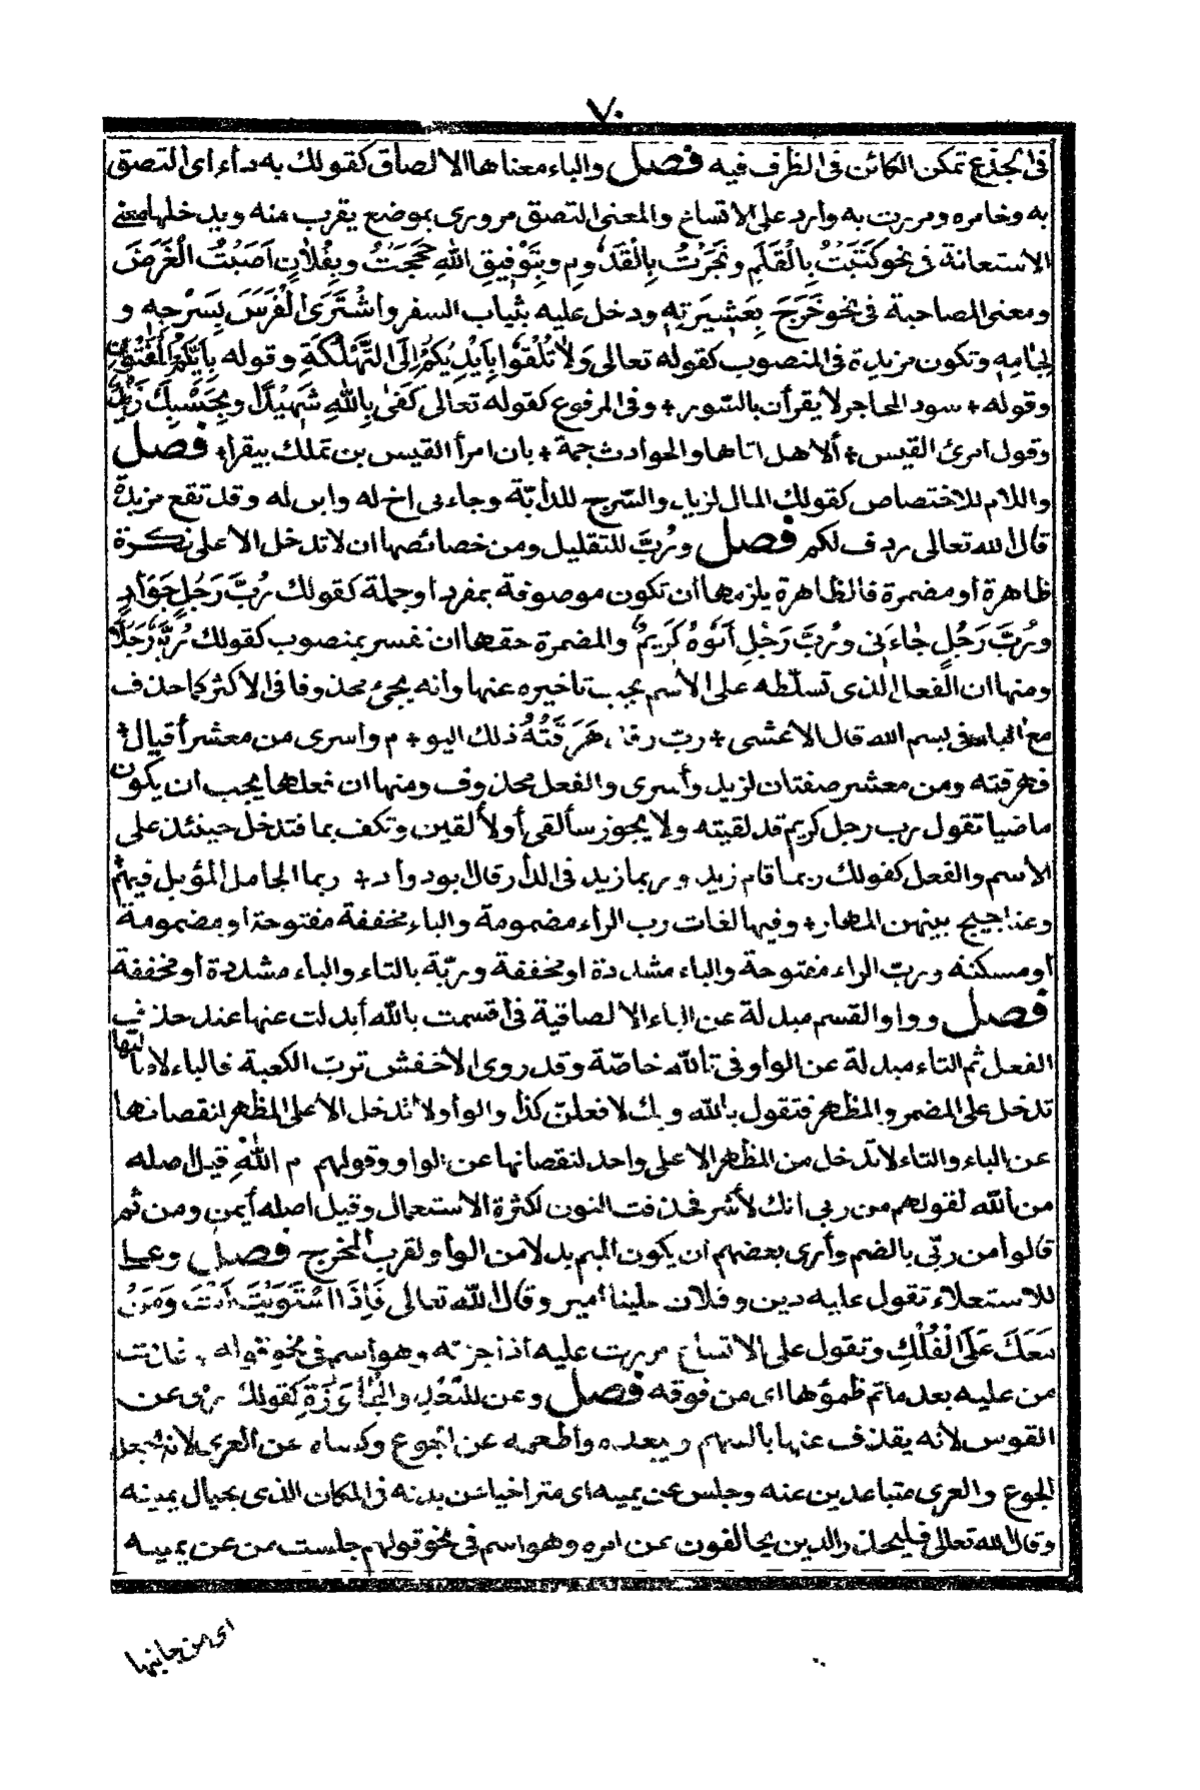 ٧٠
فى الجذع تمكن الكائن فى الظرف فيه فصل والباء معناها الالصاق كقولك به داء اى التصق
به وخامره ومررت به وارد على الاتساع والمعنى التصق مرورى بموضع يقرب منه ويدخلها معنے
الاستعانة فى نحو كَتَبْتُ بِالْقَلَمِ ونَجَرْتُ بِالْقَدُومِ وبِتَوْفِيقِ اللهِ حَجَجْتُ وبِفُلَانٍ اَصَبْتُ الْغَرَضَ
ومعنى المصاحبة فى نحو خَرَجَ بِعَشِيرَتِهِ ودخل عليه بثياب السفر واشْتَرَى الْفَرَسَ بِسَرْجِهِ و
لجامِهِ وتكون مزيدة فى المنصوب كقوله تعالى وَلَا تُلْقُوا بِاَيْدِيكُمْ اِلَى التَّهْلُكَةِ وقوله بِاَيِّكُمُ الْمَفْتُونُ
وقوله + سود المحاجر لا يقرأن بالسّور + وفى المرفوع كقوله تعالى كَفىٰ بِاللهِ شَهِيْدًا وبِحَسْبِكَ زَيْدٌ
وقول امرئ القيس + ألا هل اتاها والحوادث جمة + بان امرأ القيس بن تملك بيقرا + فصل
واللام للاختصاص كقولك المال لزيد والسّرج للدابّة وجاءنى اخ له وابن له وقد تقع مزيدة
قال الله تعالى ردف لكم فصل ورُبَّ للتقليل ومن خصائصها ان لا تدخل الا على نكرة
ظاهرة او مضمرة فالظاهرة يلزمها ان تكون موصوفة بمفرد او جملة كقولك رُبَّ رَجُلٍ جَوَادٍ
ورُبَّ رَجُلٍ جاءَنى ورُبَّ رَجُلٍ اَبُوهُ كَرِيمٌ والمضمرة حقها ان تفسر بمنصوب كقولك رُبَّهُ رَجُلًا
ومنها ان الفعل الذى تسلّطه على الاسم يجب تاخيره عنها وأنه يجئ محذوفا فى الاكثر كما حذف
مع الباء فى بسم الله قال الاعشى + ربّ رفد هَرَقْتُهُ ذلك اليو + م وأسرى من معشر أقيال +
فهرقته ومن معشر صفتان لرفد وأسرى والفعل محذوف ومنها ان فعلها يجب ان يكون
ماضيا تقول رب رجل كريم قد لقيته ولا يجوز سألقى أو لألقين وتكف بما فتدخل حينئذ على
الأسم والفعل كقولك ربما قام زيد وربما زيد فى الدار قال ابو دواد + ربما الجامل المؤبل فيهم
وعناجيج بينهن المهار + وفيها لغات رب الراء مضمومة والباء مخففة مفتوحة او مضمومة
او مسكنة وربّ الراء مفتوحة والباء مشددة او مخففة وربّة بالتاء والباء مشددة أو مخففة
فصل وواو القسم مبدلة عن الباء الالصاقية فى أقسمت بالله أبدلت عنها عند حذف
الفعل ثم التاء مبدلة عن الواو فى تالله خاصّة وقد روى الأخفش تربّ الكعبة فالباء لاصالتها
تدخل على المضمر والمظهر فتقول بالله وبك لافعلنّ كذا والواو لا تدخل الا على المظهر لنقصانها
عن الباء والتاء لا تدخل من المظهر الا على واحد لنقصانها عن الواو وقولهم م اللهِ قيل اصله
من الله لقولهم من ربى انك لأشر فحذفت النون لكثرة الاستعمال وقيل اصله أيمن ومن ثم
قالوا من ربّى بالضم وأرى بعضهم ان يكون الميم بدلا من الواو لقرب المخرج فصل وعلى
للاستعلاء تقول عليه دين وفلان علينا أمير وقال الله تعالى فَاِذَا اسْتَوَيْتَ اَنْتَ وَمَنْ
مَعَكَ عَلَى الْفُلْكِ وتقول على الاتساع مررت عليه اذا جزته وهو اسم فى نحو قوله ، غدت
من عليه بعد ما تم ظمؤها اى من فوقه فصل وعن للبُعْدِ والمُجَاوَزَةِ كقولك رمى عن
القوس لأنه يقذف عنها بالسهم ويبعده وأطعمه عن الجوع وكساه عن العرى لانه يجعل
الجوع والعرى متباعدين عنه وجلس عن يمينه اى متراخيا عن بدنه فى المكان الذى بحيال يمينه
وقال الله تعالى فليحذر الذين يخالفون عن امره وهو اسم فى نحو قولهم جلست من عن يمينه
اى من جانبها